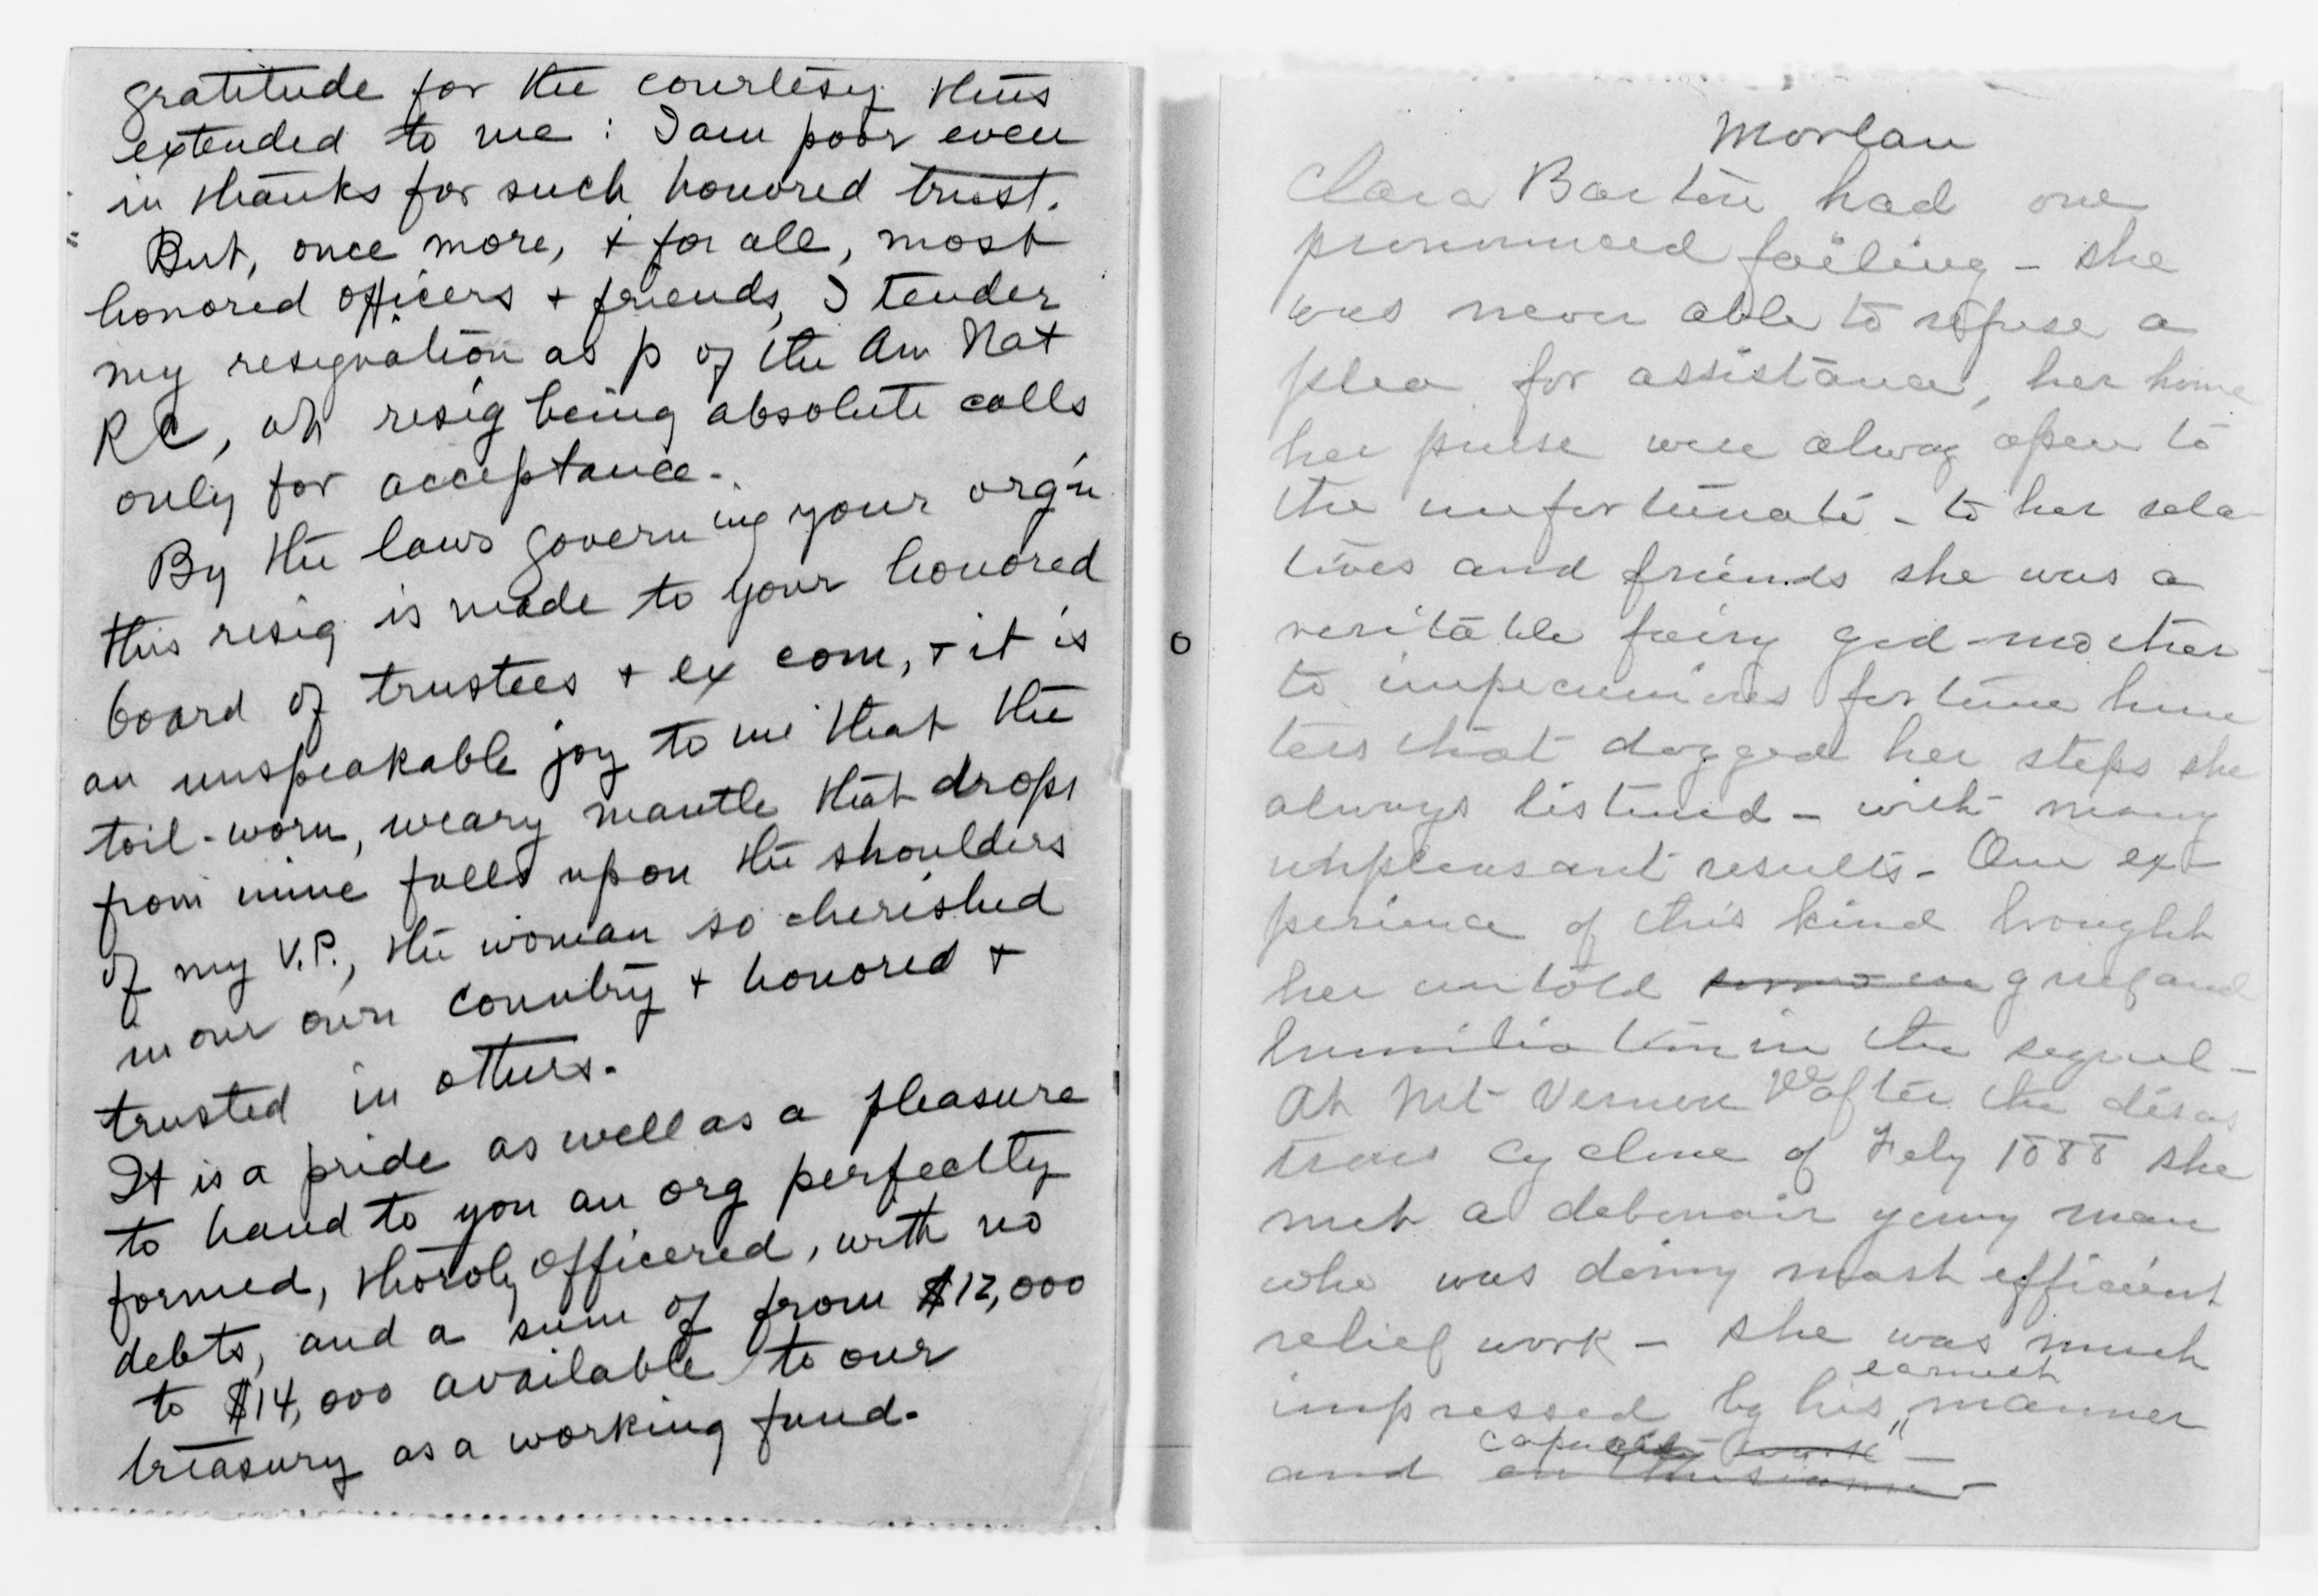 gratitude for the courtesy thus
extended to me : I am poor even
in thanks for such honored trust.
But, once more, + for all, most
honored officers + friends, I tender
my resignation as p of the Am Nat
R C, wh resig being absolute calls
only for acceptance.
By the laws governing your org'n
this resig is made to your honored
board of trustees + ex com, + it is
an unspeakable joy to me that the
toil-worn, weary mantle that drops
from mine falls upon the shoulders
of my V.P., the woman so cherished
in our own country + honored +
trusted in others.
It is a pride as well as a pleasure
to hand to you an org perfectly
formed, thoroly officered, with no
debts, and a sum of from $12,000
to $14,000 available to our
treasury as a working fund.
Morlan
Clara Barton had one
pronounced failing - she
was never able to refuse a
plea for assistance, her home
her purse were alway open to
the unfortunate - to her rela
tives and friends she was a
veritable fairy god-mother -
to impecunious fortune hun
ters that dogged her steps she
always listened - with many
unpleasant results - One ex-
perience of this kind brought
her untold grief and
humiliation in the sequel -
At Mt Vernon Ill after the disas
trous cyclone of Feby 1888 she
met a debonair young man
who was doing most efficient
relief work - she was much
earnest
impressed by his " manner
capacity work -
and enthusiasm -